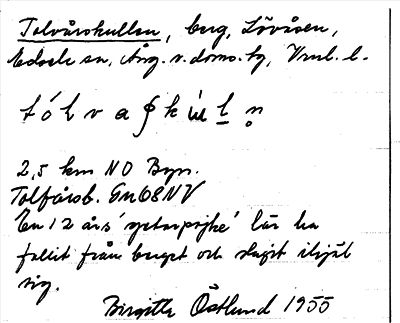 Tolvårskullen, berg, Lövåsen,
Edsele sn, Ång. v. doms. tg, Vml. l.
t ó l v a ʂ k ɯ́ l n̥
2,5 km NO Byn.
Tolfårsb. Gm68NV
En 12 års 'getarpojke' lär ha
fallit från berget och slagit ihjäl
sig.
Birgitta Östlund 1955